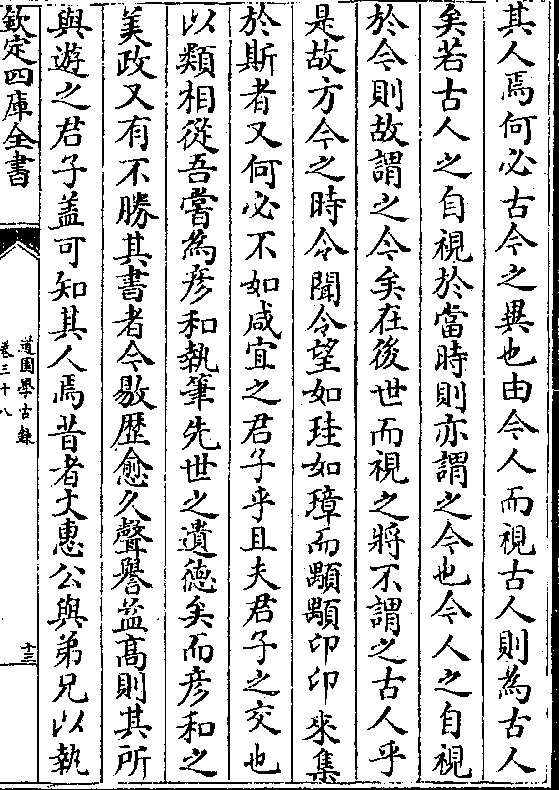 其人焉何必古今之異也由今人而視古人則為古人
矣若古人之自視於當時則亦謂之今也今人之自視
於今則故謂之今矣在後世而視之將不謂之古人乎
是故方今之時令聞令望如珪如璋而顒顒卬卬來集
於斯者又何必不如咸宜之君子乎且夫君子之交也
以類相從吾嘗為彦和執筆先世之遺徳矣而彦和之
美政又有不勝其書者今敭歴愈久聲譽益髙則其所
與遊之君子葢可知其人焉昔者大惠公與弟兄以執
欽定四庫全書
道園學古錄
卷三十八
十三